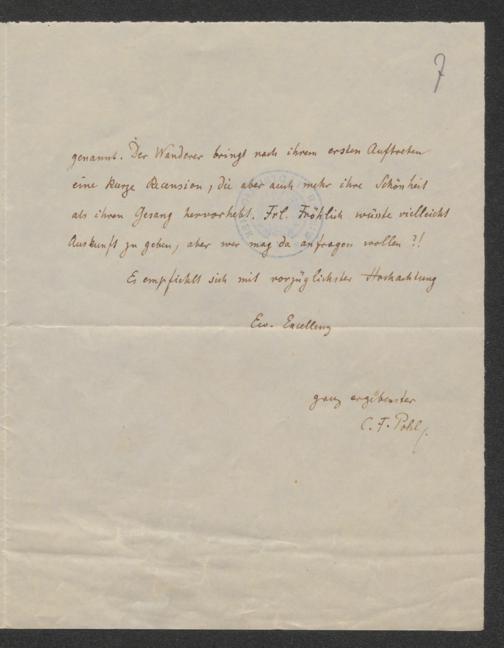 7
genannt. Der Wanderer bringt nach ihrem ersten Auftreten
eine kurze Recension, die aber auch mehr ihre Schönheit
als ihren Gesang hervorhebt. Frl. Fröhlich wüsste vielleicht
Auskunft zu geben, aber wer mag da anfragen wollen?!
Es empfiehlt sich mit vorzüglichster Hochachtung
Ew. Excellenz
ganz ergebenster
C. F. Pohl.